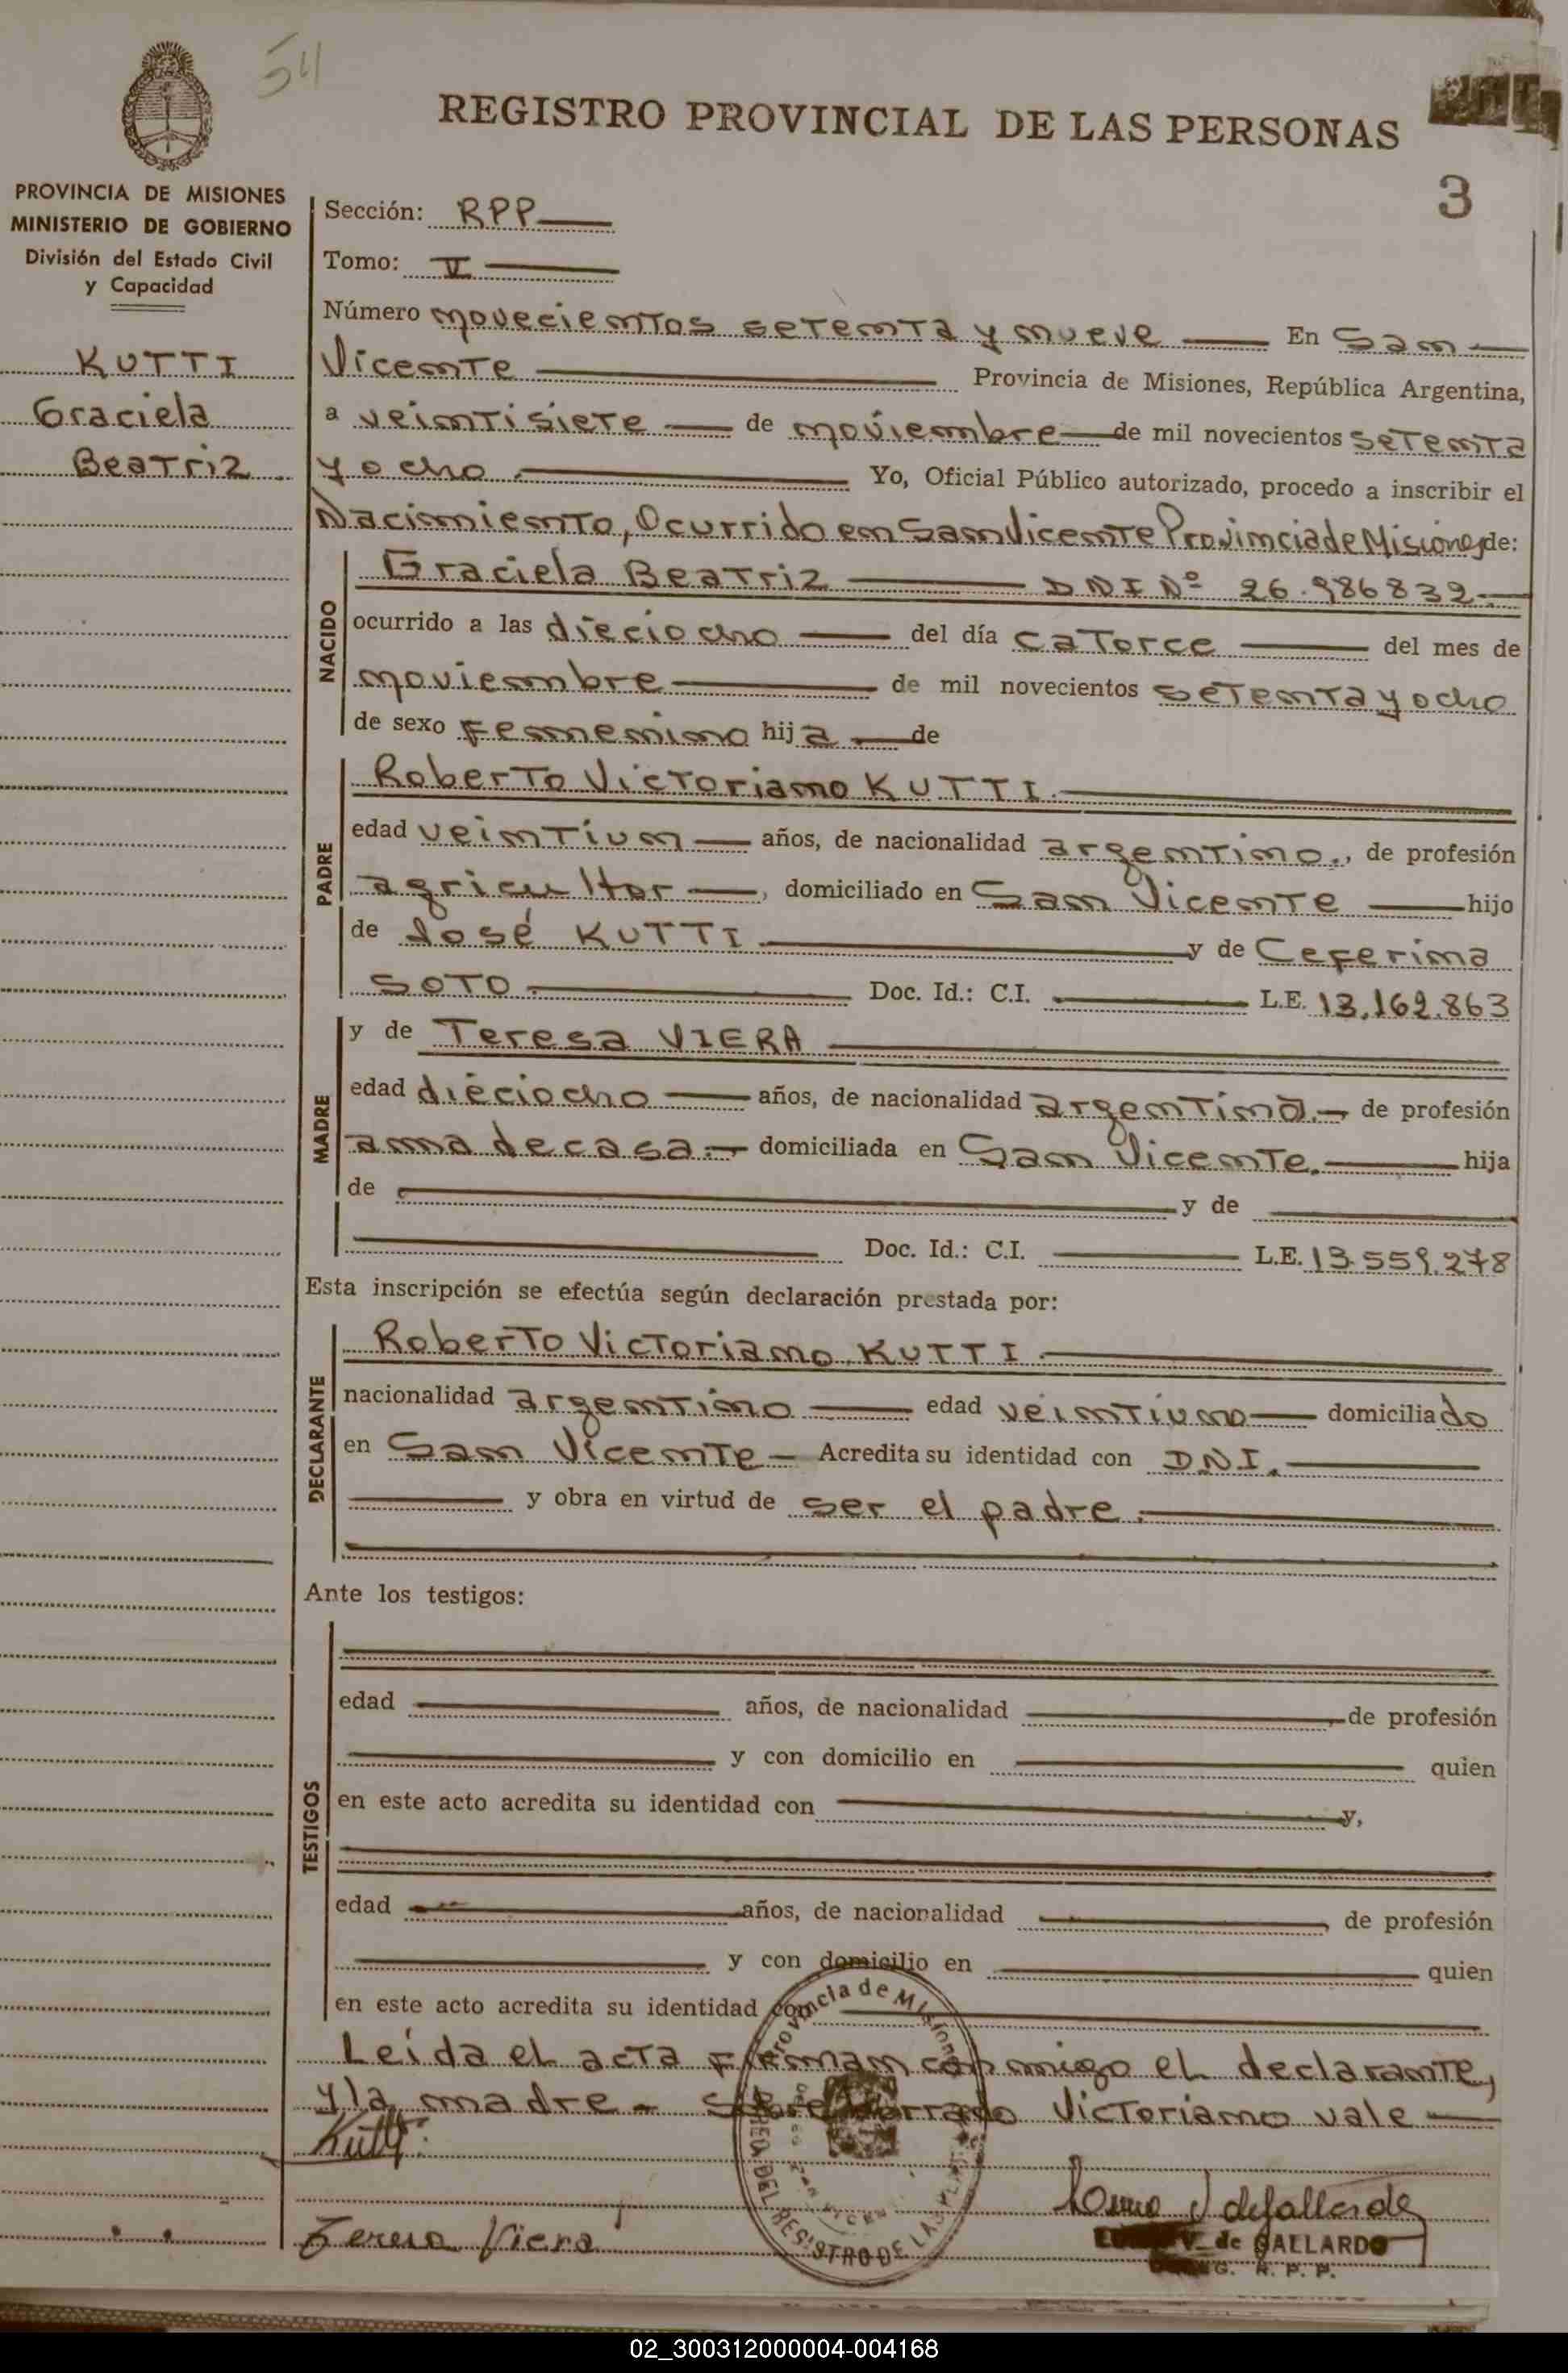 54
REGISTRO PROVINCIAL DE LAS PERSONAS
3
PROVINCIA DE MISIONES
MINISTERIO DE GOBIERNO
División del Estado Civil
y Capacidad
KUTTI
Graciela
Beatriz
Sección: RPP
Tomo: V
Número novecientos setenta y nueve En San
Vicente Provincia de Misiones, República Argentina,
a veintisiete de noviembre de mil novecientos setenta
y ocho. Yo, Oficial Público autorizado, procedo a inscribir el
Nacimiento, Ocurrido en San Vicente Provincia de Misiones de:
NACIDO
Graciela Beatriz DNI Nº 26.986832.-
ocurrido a las dieciocho del día catorce del mes de
noviembre de mil novecientos setenta y ocho
de sexo femenino hija de
PADRE
Roberto Victoriano KUTTI.
edad veintiun años, de nacionalidad argentino., de profesión
agricultor, domiciliado en San Vicente hijo
de José KUTTI y de Ceferina
SOTO. Doc. Id.: C.I. L.E. 13.162.863
MADRE
y de Teresa VIERA
edad dieciocho años, de nacionalidad argentina.- de profesión
ama de casa.- domiciliada en San Vicente. hija
de y de
Doc. Id.: C.I. L.E. 13.559.278
Esta inscripción se efectúa según declaración prestada por:
DECLARANTE
Roberto Victoriano KUTTI.
nacionalidad argentino edad veintiuno domiciliado
en San Vicente - Acredita su identidad con DNI.
y obra en virtud de ser el padre.
Ante los testigos:
TESTIGOS
edad años, de nacionalidad , de profesión
y con domicilio en quien
en este acto acredita su identidad con y,
edad años, de nacionalidad , de profesión
y con domicilio en quien
en este acto acredita su identidad con
Leida el acta firman conmigo el declarante,
y la madre - Sobre borrado Victoriano vale
Kutti
Teresa Viera
Provincia de Misiones
DEL REGISTRO DE LAS
V. de GALLARDO
R. P. P.
02_300312000004-004168